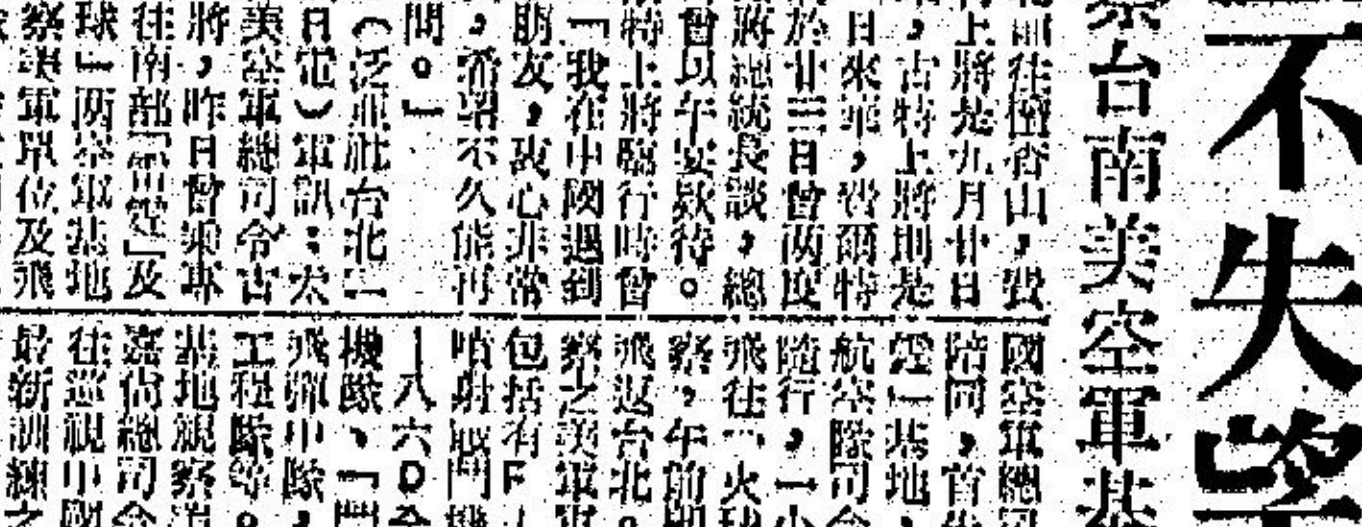 不失望
察台南美空軍基
往檀香山，費
上將是九月廿日
，古特上將則是
日來華，費爾特
於廿三日曾兩度
蔣總統長談，總
曾以午宴欵待。
特上將臨行時曾
「我在中國遇到
朋友，衷心非常
，希望不久能再
問。」
（泛亞社台北二
日電）軍訊：太
美空軍總司令古
將，昨日曾乘專
往南部「　」及
球」兩空軍基地
察美軍單位及飛
國空軍總司
陪同，首先
」基地，
航空隊司令
隨行，一小
飛往「火球
察，午前即
飛返台北。
察之美軍單
包括有F
噴射戰鬥機
—八六D全
機隊、「鬥
飛彈中隊，
工程隊等。
基地視察
總司令
往巡視中國
最新訓練之